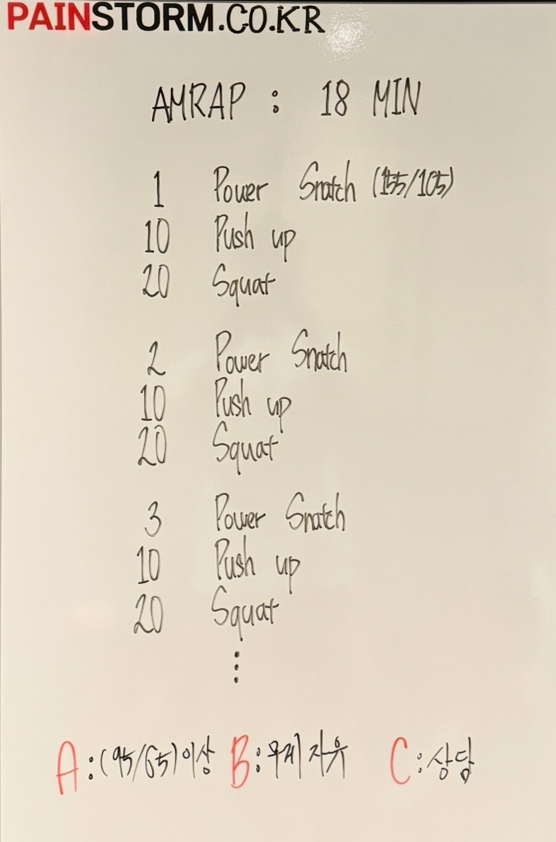 PAINSTORM.CO.KR
AMRAP : 18 MIN
1 Power Snatch (155/105)
10 Push up
20 Squat
2 Power Snatch
10 Push up
20 Squat
3 Power Snatch
10 Push up
20 Squat
⋮
A:(95/65)이상 B:무게 자유 C:상담